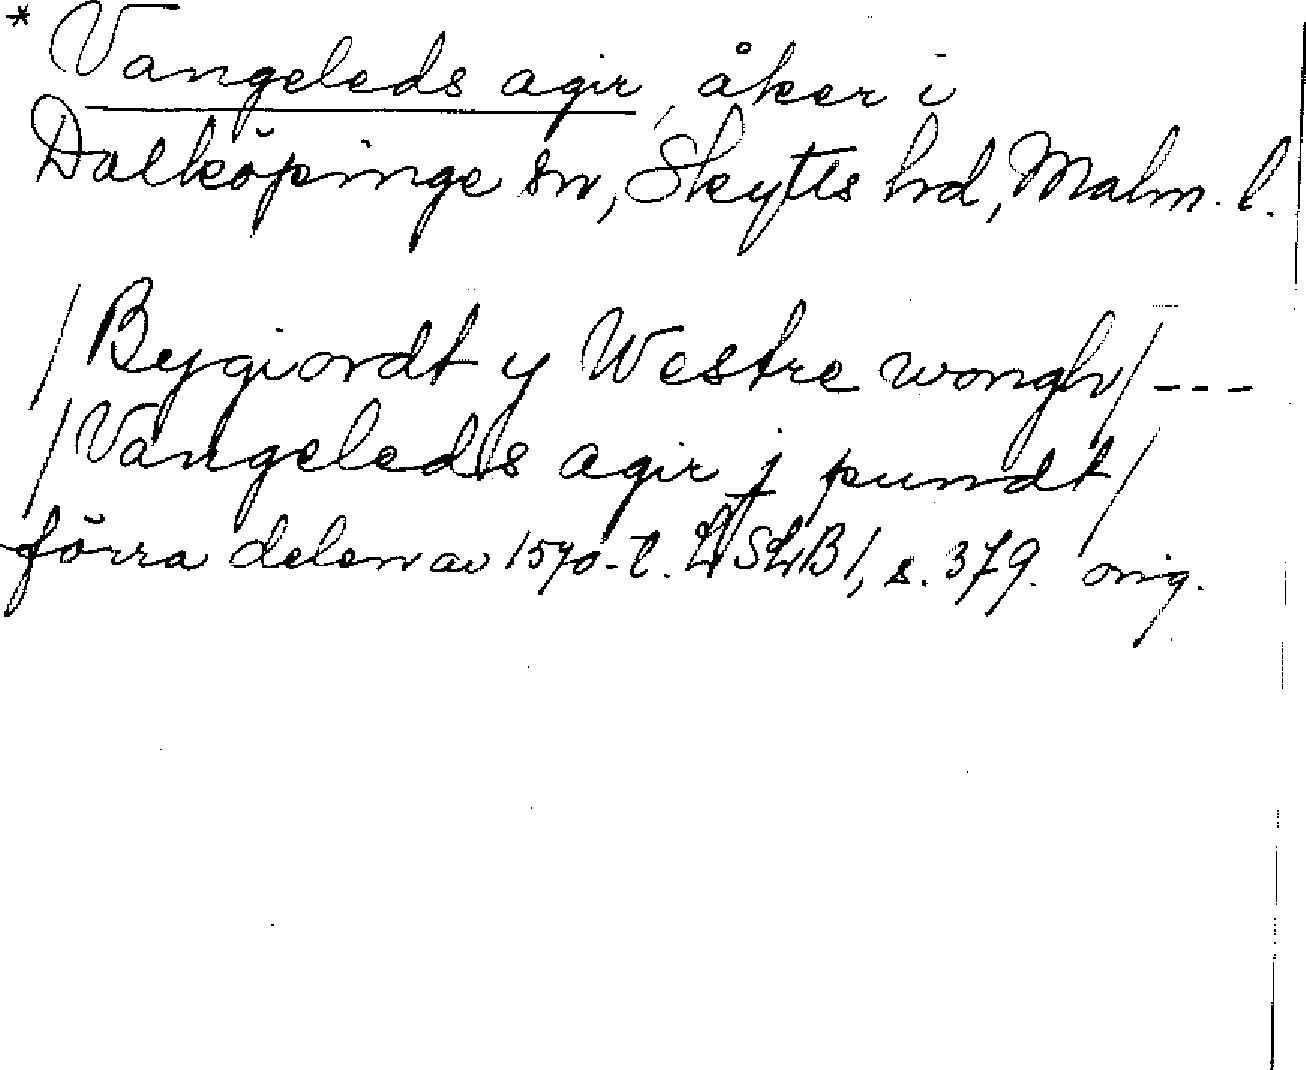 * Vangeleds agir, åker i
Dalköpinge sn, Skytts hd, Malm. l.
/Bygiordt y Westre wongh/ ---
/Vangeleds agir j pundt/
förra delen av 1570-t. LSLB 1, s. 379. orig.